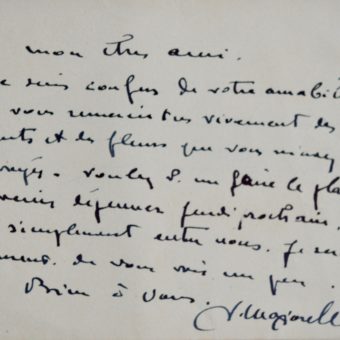 mon très ami.
e suis confus de votre amabilit
vous remercie très vivement des
ts et des fleurs que vous m'avez
oyés. voulez me faire le pla
venir déjeuner jeudi prochain,
simplement entre nous. Je se
de vous voir un peu.
Bien à vous.
J. Majorell